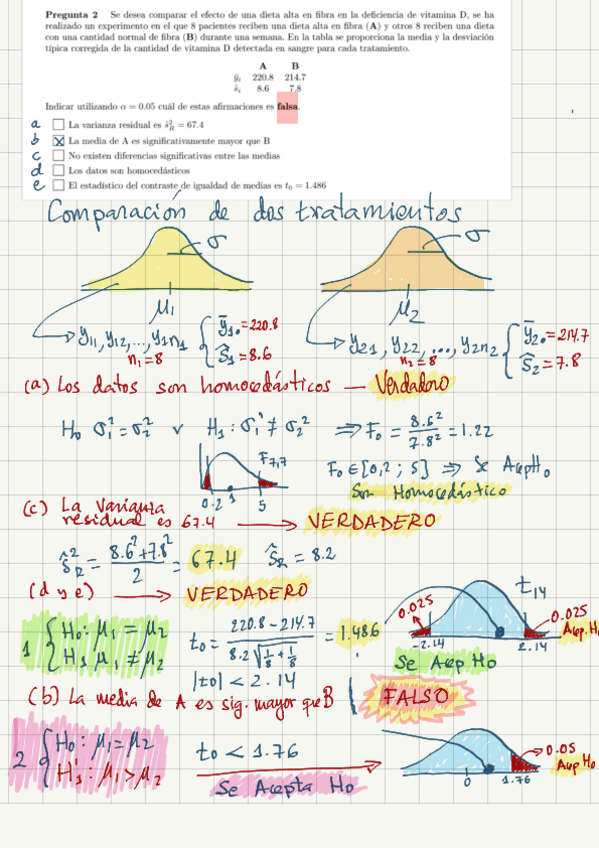 Pregunta 2 Se desea comparar el efecto de una dieta alta en fibra en la deficiencia de vitamina D, se ha
realizado un experimento en el que 8 pacientes reciben una dieta alta en fibra (A) y otros 8 reciben una dieta
con una cantidad normal de fibra (B) durante una semana. En la tabla se proporciona la media y la desviación
típica corregida de la cantidad de vitamina D detectada en sangre para cada tratamiento.
A B
ȳᵢ 220.8 214.7
ŝᵢ 8.6 7.8
Indicar utilizando α = 0.05 cuál de estas afirmaciones es falsa.
a ☐ La varianza residual es ŝ²_R = 67.4
b ☒ La media de A es significativamente mayor que B
c ☐ No existen diferencias significativas entre las medias
d ☐ Los datos son homocedásticos
e ☐ El estadístico del contraste de igualdad de medias es t₀ = 1.486
Comparación de dos tratamientos
σ σ
μ₁ μ₂
y₁₁, y₁₂, ..., y₁n₁ ȳ₁• = 220.8 y₂₁, y₂₂, ..., y₂n₂ ȳ₂• = 214.7
n₁ = 8 Ŝ₁ = 8.6 n₂ = 8 Ŝ₂ = 7.8
(a) Los datos son homocedásticos — Verdadero
H₀ σ₁² = σ₂² v H₁: σ₁² ≠ σ₂² ⇒ F₀ = 8.6²/7.8² = 1.22
F₇,₇ F₀ ∈ [0,2 ; 5] ⇒ Se Acep H₀
0.2 1 5 Son Homocedástico
(c) La Varianza
residual es 67.4 → VERDADERO
ŝ²_R = (8.6² + 7.8²)/2 = 67.4 Ŝ_R = 8.2
(d y e) → VERDADERO
1 { H₀: μ₁ = μ₂ t₀ = (220.8 - 214.7)/(8.2 √(1/8 + 1/8)) = 1.486 0.025 t₁₄ 0.025
H₁ μ₁ ≠ μ₂ -2.14 2.14 Acep. H₀
|t₀| < 2.14 Se Acep H₀
(b) La media de A es sig. mayor que B FALSO
2 { H₀: μ₁ = μ₂ t₀ < 1.76 → 0.05
H₁: μ₁ > μ₂ Se Acepta H₀ 0 1.76 Acep H₀